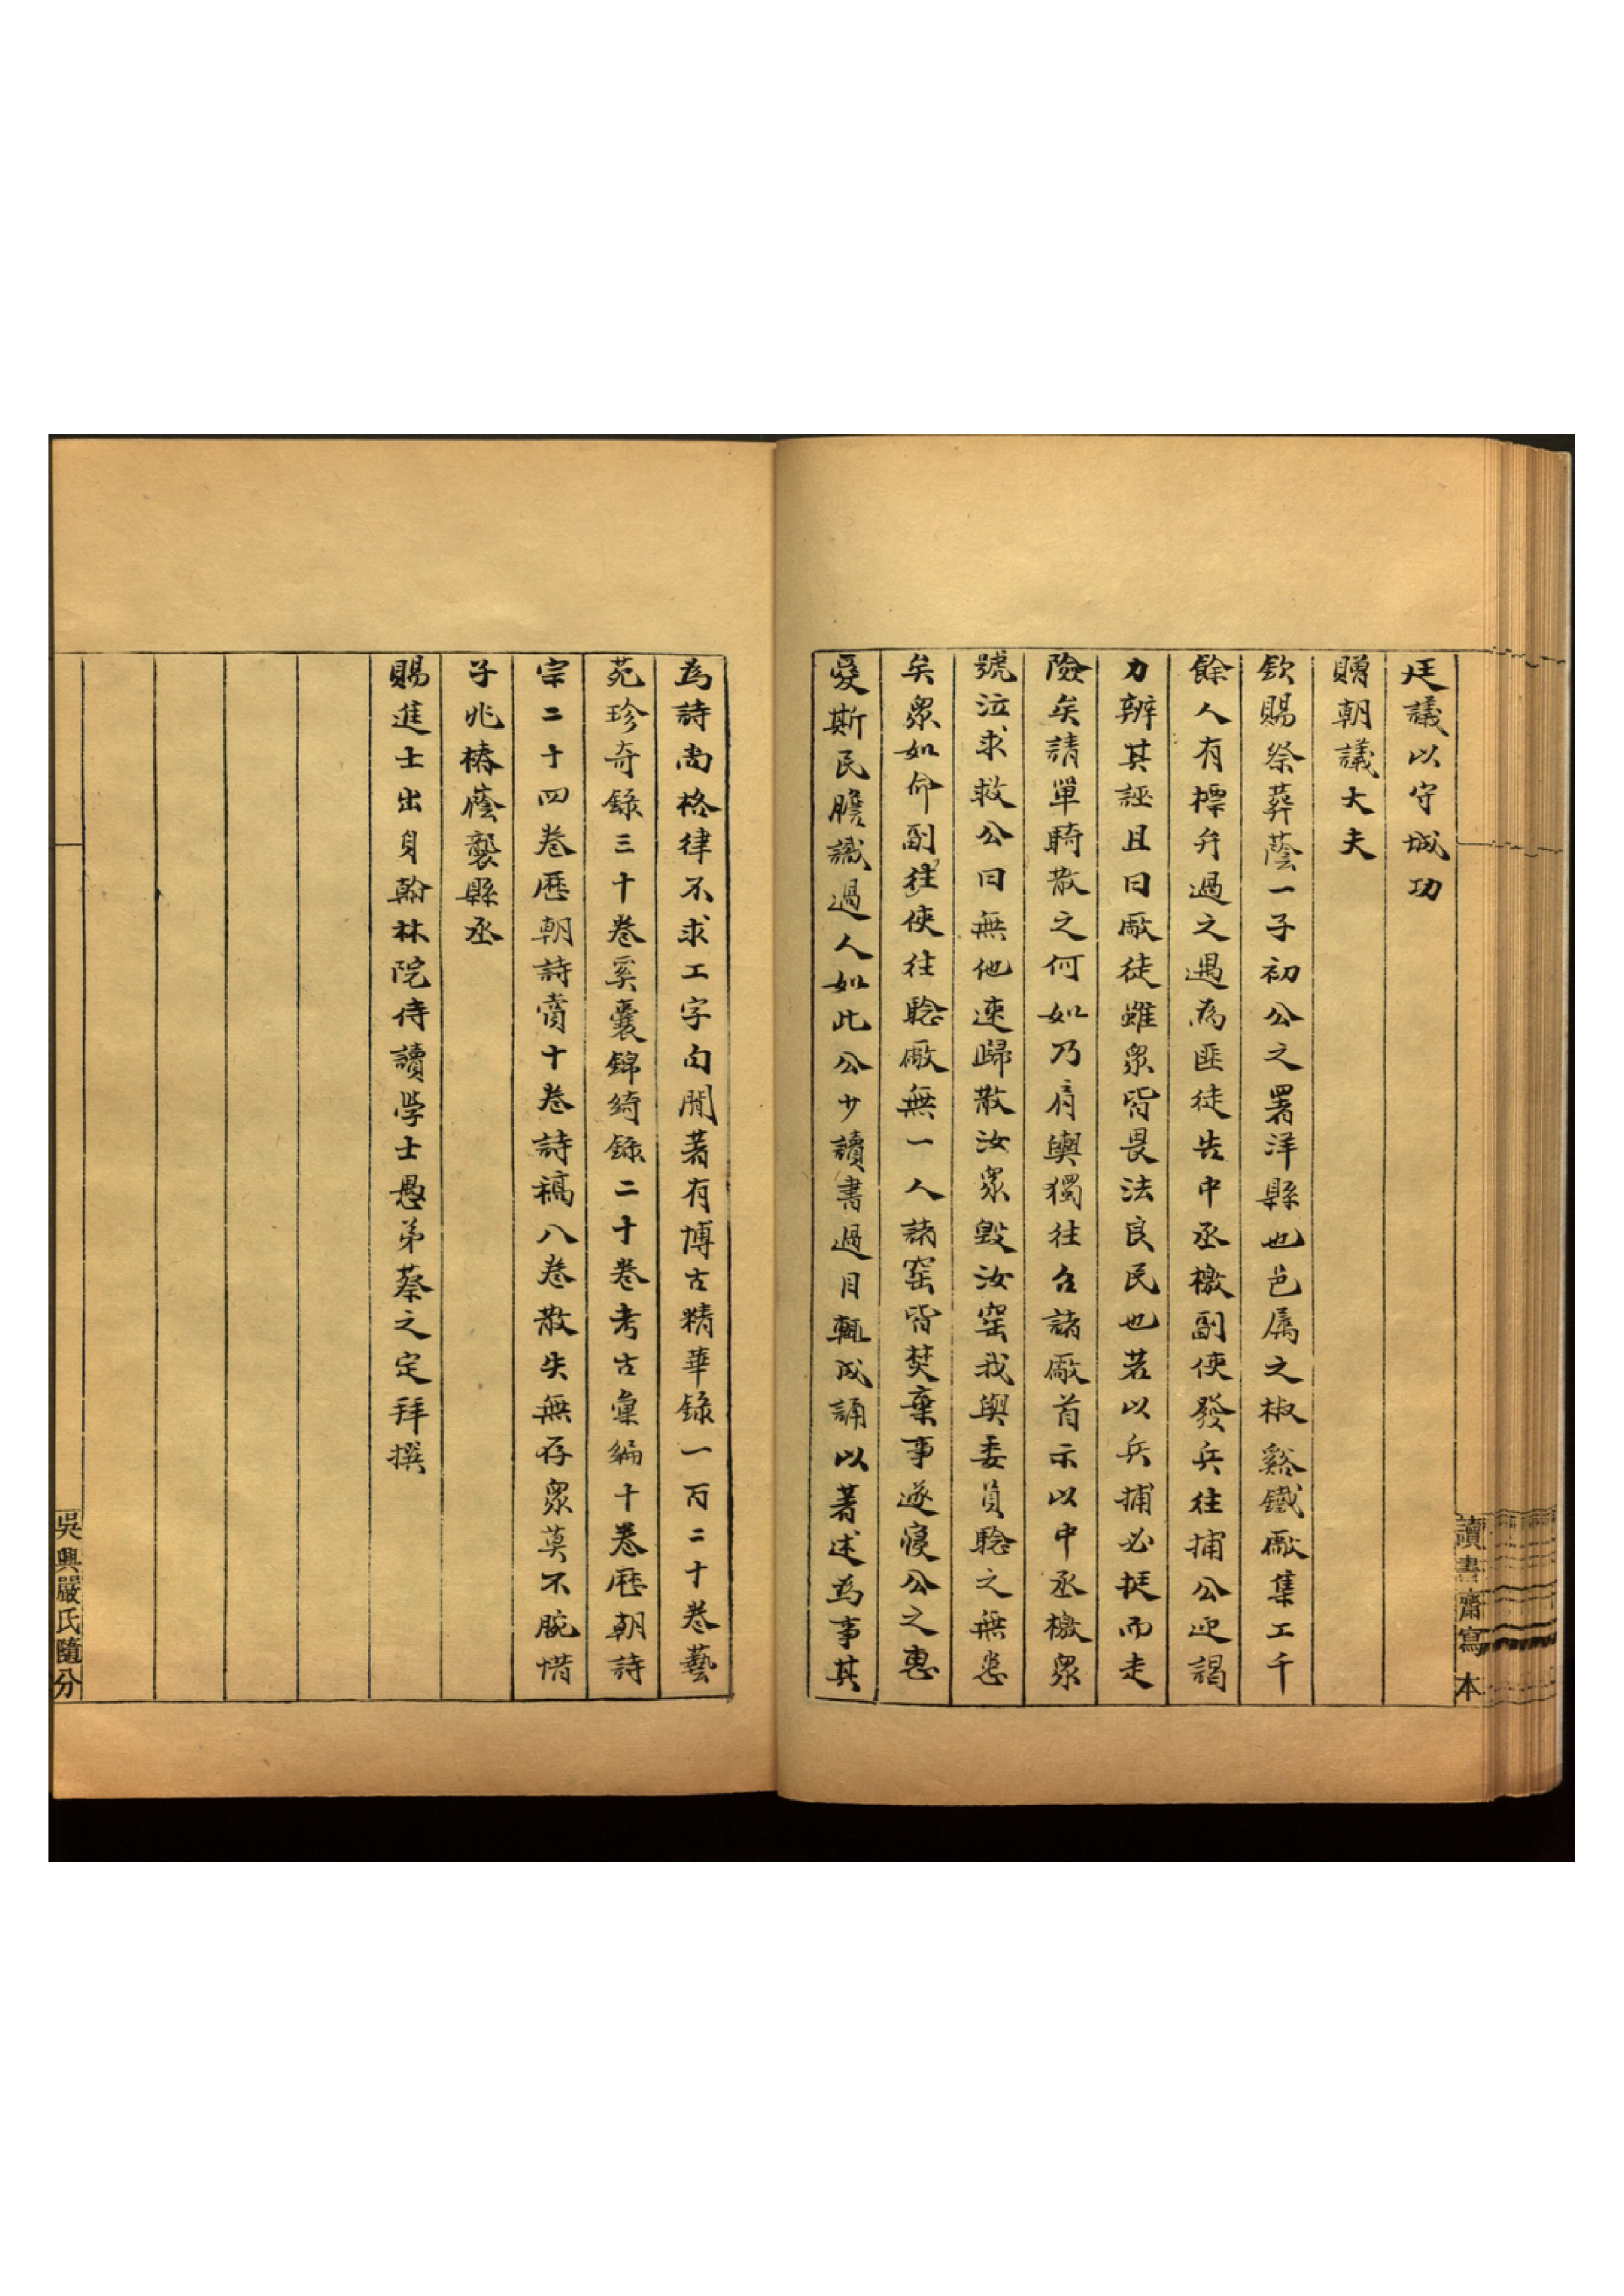 廷議以守城功
贈朝議大夫
欽賜祭葬蔭一子初公之署洋縣也邑属之椒谿鐵廠集工千
餘人有摽弁過之遇為匪徒告中丞檄副使發兵往捕公迎謁
力辨其誣且曰廠徒雖衆皆畏法良民也若以兵捕必挺而走
險矣請單騎散之何如乃肩輿獨往召諸廠首示以中丞檄衆
號泣求救公曰無他速歸散汝衆毀汝窑我與委員騐之無恙
矣衆如命副往使往騐廠無一人諸窑皆焚棄事遂寢公之惠
愛斯民膽識過人如此公少讀書過目輒成誦以著述為事其
為詩尚格律不求工字句間著有博古精華錄一百二十卷藝
苑珍奇錄三十卷奚囊錦綺錄二十卷考古彙編十卷歷朝詩
宗二十四卷歷朝詩賞十卷詩稿八卷散失無存衆莫不腕惜
子兆椿蔭襲縣丞
賜進士出身翰林院侍讀學士愚弟蔡之定拜撰
讀書齋寫本
吳興嚴氏隨分